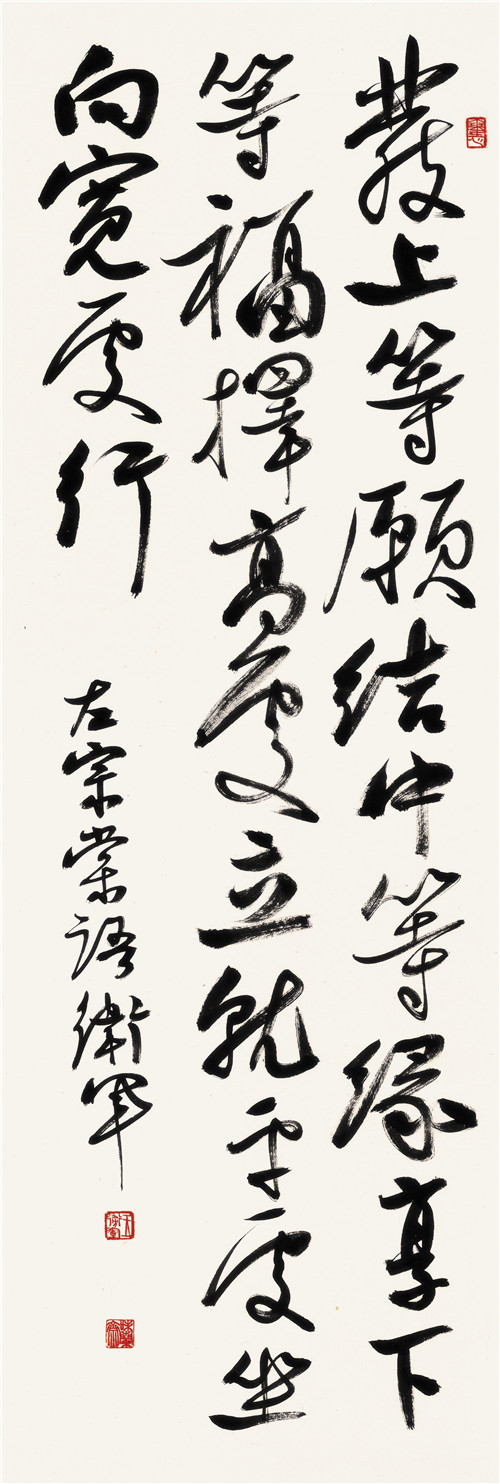 發上等願結中等緣享下
等福擇高處立就平處坐
向寬處行
左宗棠語衛軍